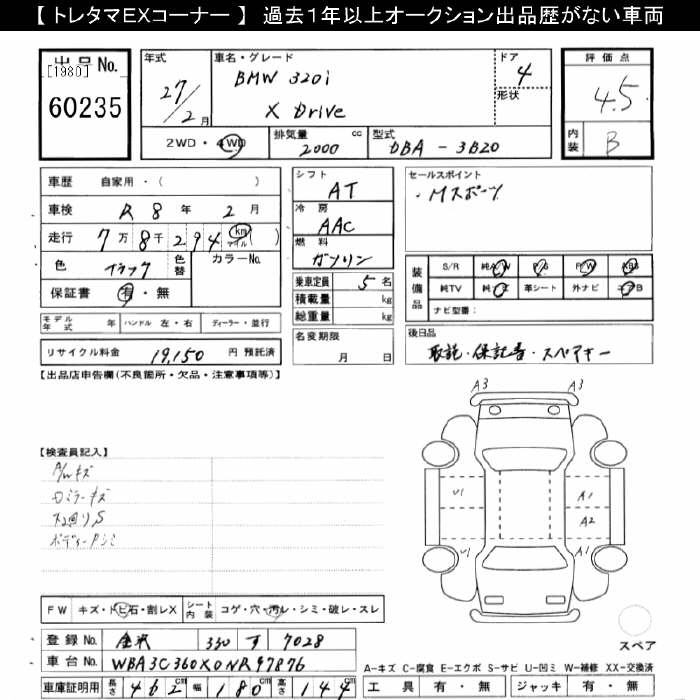 【 トレタマEXコーナー 】 過去1年以上オークション出品歴がない車両
出品 No.
[1980]
60235
年式
27/2月
車名・グレード
BMW 320i
X Drive
ドア
4
形状
2WD・4WD
排気量
2000 cc
型式
DBA - 3B20
評価点
4.5
内装
B
車歴 自家用・( )
車検 R 8 年 2 月
走行 7万 8千 2 9 4 km マイル ( )
色 ブラック 色替 カラーNo.
保証書 有・無
シフト
AT
冷房
AAC
燃料
ガソリン
乗車定員 5 名
積載量 kg
総重量 kg
名変期限
月 日
セールスポイント
・Mスポーツ
装備品
S/R 純A/W P/S P/W ABS
純TV 純ナビ 革シート 外ナビ エアB
ナビ型番:
モデル年式 年 ハンドル 左・右 ディーラー・並行
リサイクル料金 19,150 円 預託済
後日品
取説・保証書・スペアキー
【出品店申告欄(不良箇所・欠品・注意事項等)】
【検査員記入】
A/Wキズ
ロミラーキズ
ス廻りS
ボディーPシミ
A3 A3
U1 A1
A2
U1 A1
FW キズ・トビ石・割レX シート内装 コゲ・穴・汚レ・シミ・破レ・スレ
登録 No. 金沢 330 す 7028
車台 No. WBA3C360X0NR97876
車庫証明用 長さ 462 幅 180 高さ 144
スペア
A-キズ C-腐食 E-エクボ S-サビ U-凹ミ W-補修 XX-交換済
工具 有・無 ジャッキ 有・無